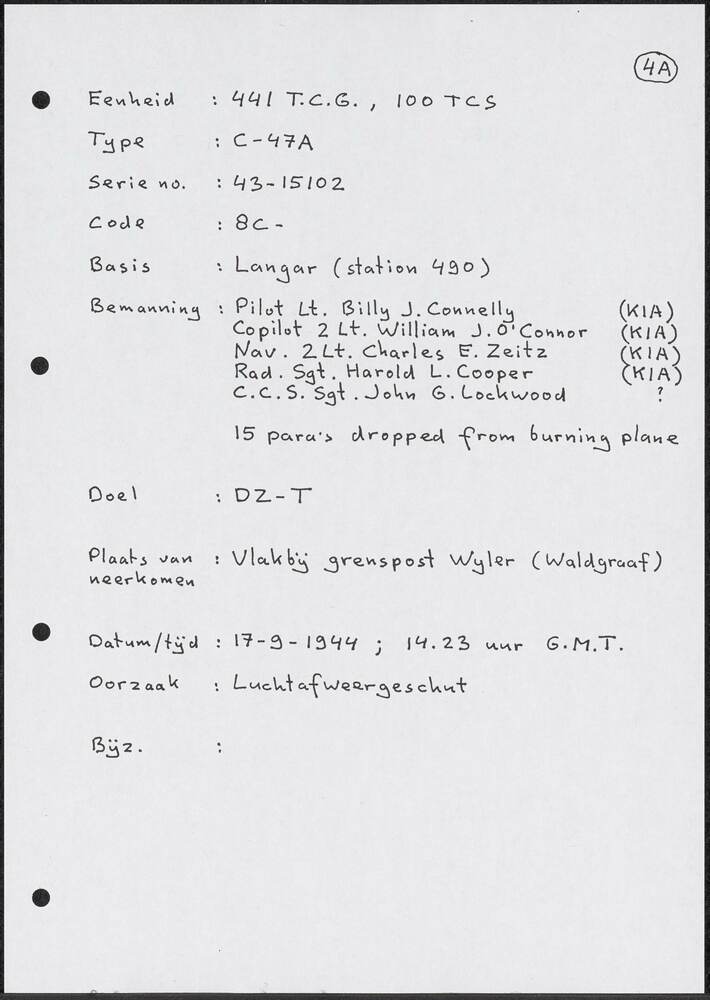 4A
Eenheid : 441 T.C.G., 100 TCS
Type : C-47A
Serie no. : 43-15102
Code : 8C-
Basis : Langar (station 490)
Bemanning : Pilot Lt. Billy J. Connelly (KIA)
Copilot 2 Lt. William J. O'Connor (KIA)
Nav. 2 Lt. Charles E. Zeitz (KIA)
Rad. Sgt. Harold L. Cooper (KIA)
C.C. S. Sgt. John G. Lockwood ?
15 para's dropped from burning plane
Doel : DZ-T
Plaats van : Vlakbij grenspost Wyler (Waldgraaf)
neerkomen
Datum/tijd : 17-9-1944 ; 14.23 uur G.M.T.
Oorzaak : Luchtafweergeschut
Bijz. :